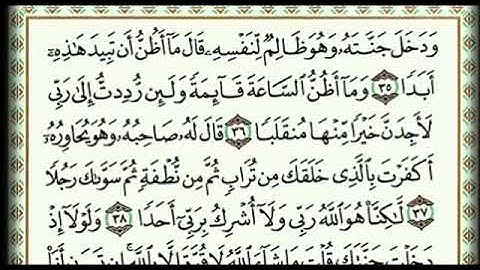 وَدَخَلَ جَنَّتَهُۥ وَهُوَ ظَالِمٌ لِّنَفْسِهِۦ قَالَ مَآ أَظُنُّ أَن تَبِيدَ هَٰذِهِۦٓ
أَبَدًا ٣٥ وَمَآ أَظُنُّ ٱلسَّاعَةَ قَآئِمَةً وَلَئِن رُّدِدتُّ إِلَىٰ رَبِّى
لَأَجِدَنَّ خَيْرًا مِّنْهَا مُنقَلَبًا ٣٦ قَالَ لَهُۥ صَاحِبُهُۥ وَهُوَ يُحَاوِرُهُۥٓ
أَكَفَرْتَ بِٱلَّذِى خَلَقَكَ مِن تُرَابٍ ثُمَّ مِن نُّطْفَةٍ ثُمَّ سَوَّىٰكَ رَجُلًا
٣٧ لَّٰكِنَّا۠ هُوَ ٱللَّهُ رَبِّى وَلَآ أُشْرِكُ بِرَبِّىٓ أَحَدًا ٣٨ وَلَوْلَآ إِذْ
دَخَلْتَ جَنَّتَكَ قُلْتَ مَا شَآءَ ٱللَّهُ لَا قُوَّةَ إِلَّا بِٱللَّهِ إِن تَرَنِ أَنَا۠